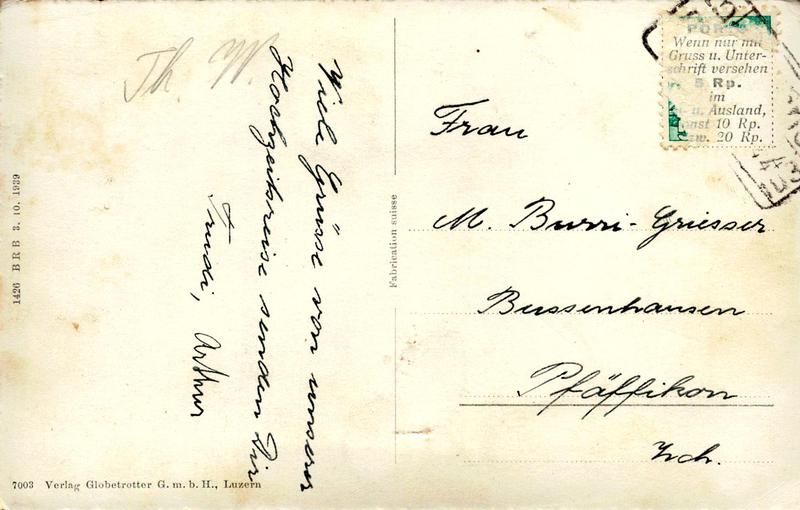 Th. W.
Viele Grüsse von unserer
Hochzeitsreise senden Dir
Trudi, Arthur
1426 BRB 3. 10. 1939
7003 Verlag Globetrotter G. m. b. H., Luzern
Fabrication suisse
PORTO
Wenn nur mit
Gruss u. Unter-
schrift versehen
5 Rp.
im
u. Ausland,
sonst 10 Rp.
bzw. 20 Rp.
Frau
M. Burri-Griesser
Bussenhausen
Pfäffikon
Zch.